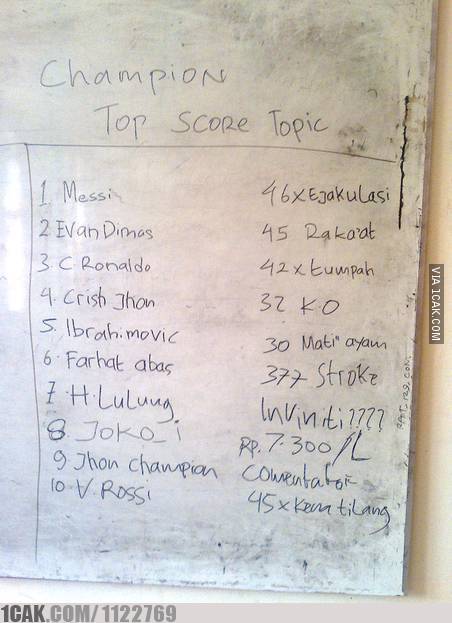 Champion
Top Score Topic
1 Messi 46xEjakulasi
2 Evan Dimas 45 Raka'at
3. C Ronaldo 42xtumpah
4. Crish Jhon 32 K.O
5. Ibrahimovic 30 Mati" ayam
6. Farhat abas 377 Stroke
7. H. Lulung Inviniti????
8. JOKO_i RP. 7.300/L
9 Jhon Champion Comentator
10. V. Rossi 45xKena tilang
VIA 1CAK.COM
1CAK.COM/1122769